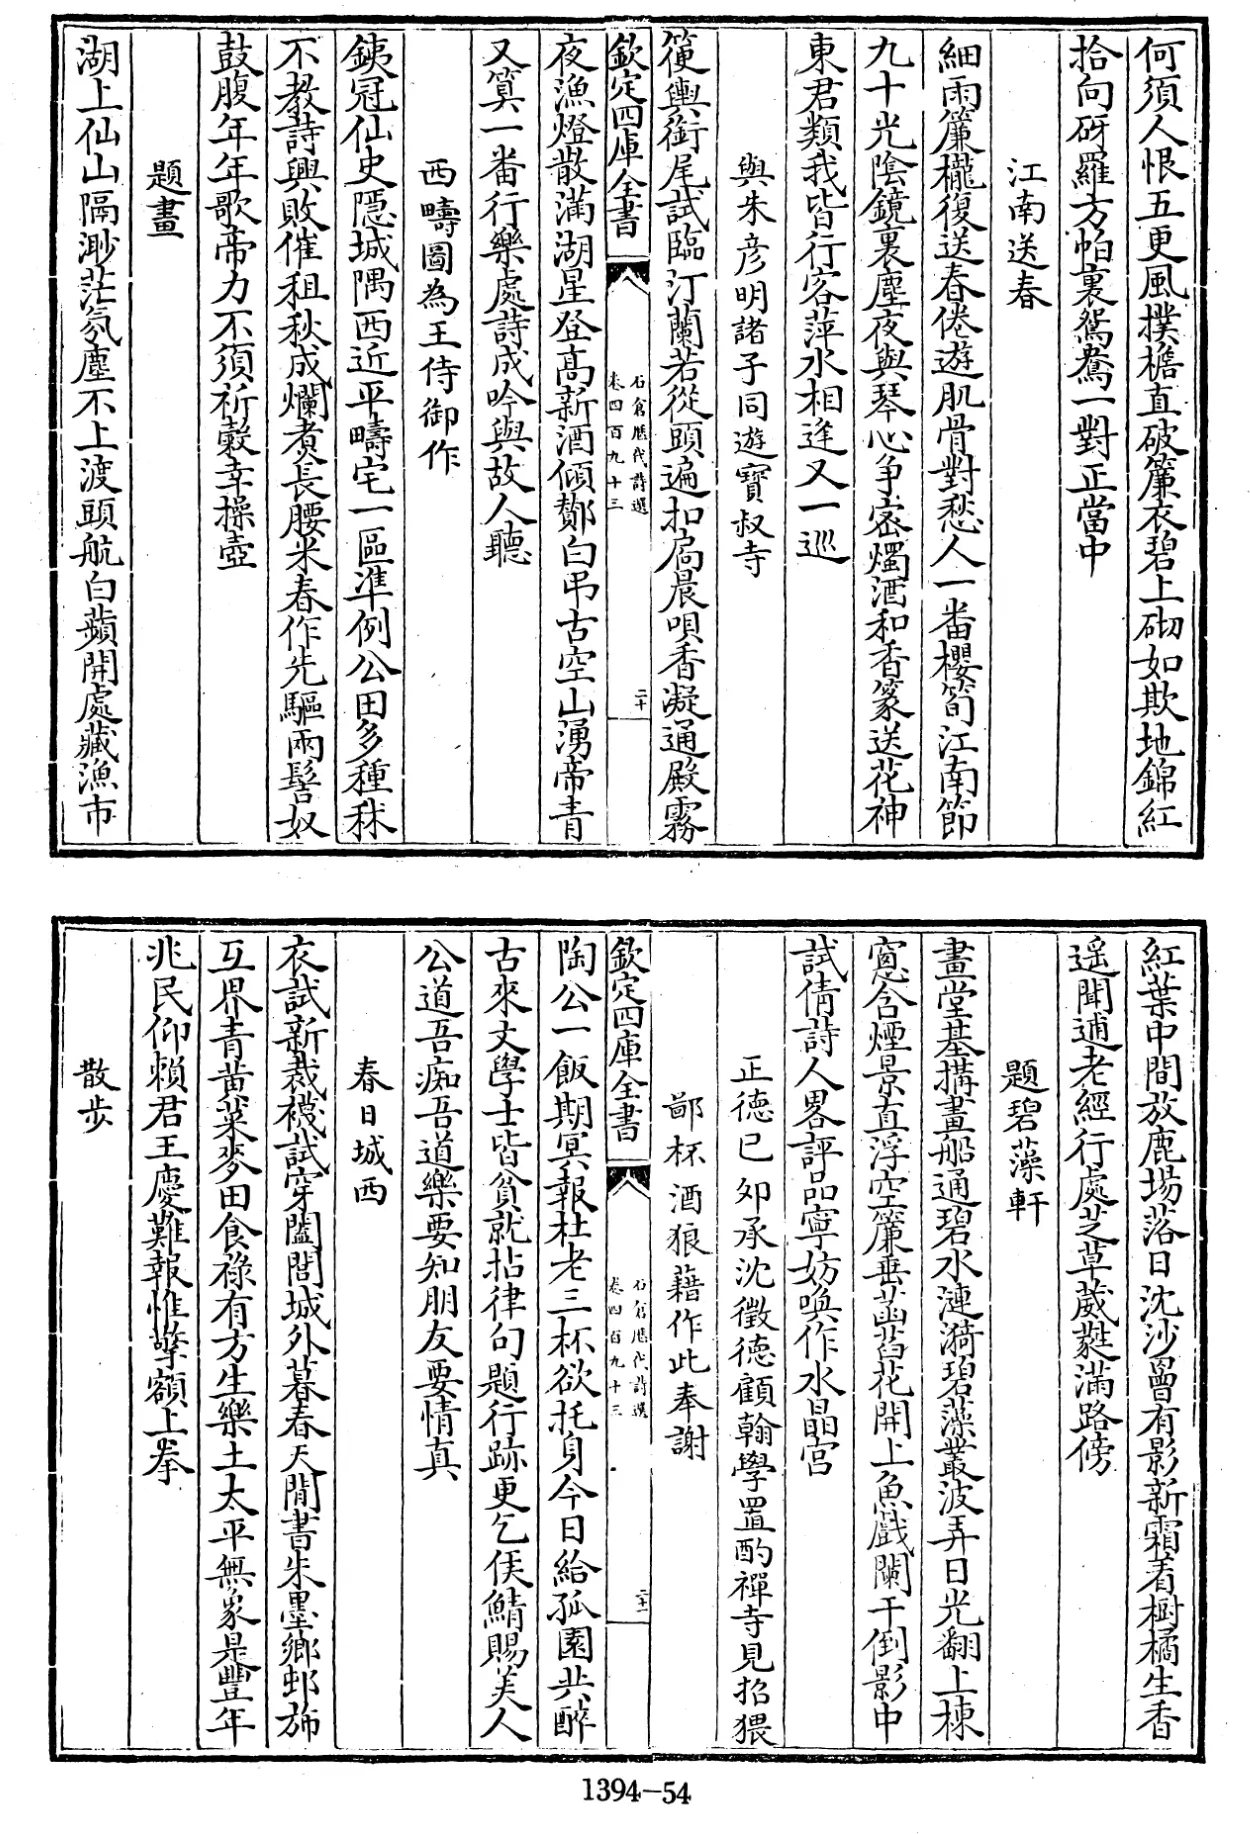 何須人恨五更風撲檐直破簾衣碧上砌如欺地錦紅
拾向砑羅方帕裏鴛鴦一對正當中
江南送春
細雨簾櫳復送春倦遊肌骨對愁人一番櫻筍江南節
九十光陰鏡裏塵夜與琴心爭密燭酒和香篆送花神
東君類我皆行客萍水相逢又一巡
與朱彥明諸子同遊寶叔寺
箯輿銜尾試臨汀蘭若從頭遍扣扃晨唄香凝通殿霧
欽定四庫全書
石倉歷代詩選
卷四百九十三
二十
夜漁燈散滿湖星登高新酒傾鄰白弔古空山湧帝青
又算一番行樂處詩成吟與故人聽
西疇圖為王侍御作
銕冠仙史隱城隅西近平疇宅一區準例公田多種秫
不教詩興敗催租秋成爛煮長腰米春作先驅兩髻奴
鼓腹年年歌帝力不須祈穀幸操壺
題畫
湖上仙山隔渺茫氛塵不上渡頭航白蘋開處藏漁市
紅葉中間放鹿場落日沈沙曾有影新霜着樹橘生香
遥聞逋老經行處芝草葳蕤滿路傍
題碧藻軒
畫堂基搆畫船通碧水漣漪碧藻叢波弄日光翻上棟
窻含煙景直浮空簾垂菡萏花開上魚戲闌干倒影中
試倩詩人畧評品寧妨喚作水晶宫
正德已卯承沈徵德顧翰學置酌禪寺見招猥
鄙杯酒狼藉作此奉謝
欽定四庫全書
石倉歷代詩選
卷四百九十三
二十一
陶公一飯期冥報杜老三杯欲托身今日給孤園共醉
古來文學士皆貧就拈律句題行跡更乞侯鯖賜美人
公道吾痴吾道樂要知朋友要情真
春日城西
衣試新裁襪試穿闔閭城外暮春天閒書朱墨鄉邨斾
互界青黄菜麥田食祿有方生樂土太平無象是豐年
兆民仰賴君王慶難報惟擎額上拳
散步
1394-54